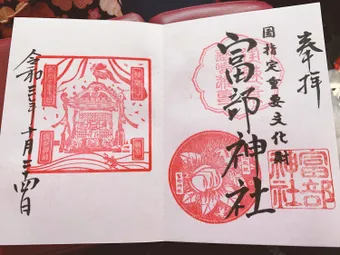 奉拝
国指定重要文化財
富部神社
富部
神社
令和三年十月二四日